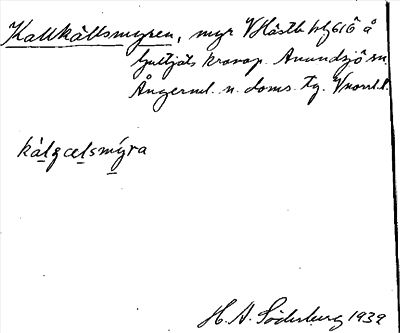 Kallkällsmyren, myr V Hästb. bl 61Ö å
Gultjäls kronop. Anundsjö sn.
Ångerml. n. doms. tg. Vnorrl. l.
kálʒælsmýra
H. A. Söderburg 1939